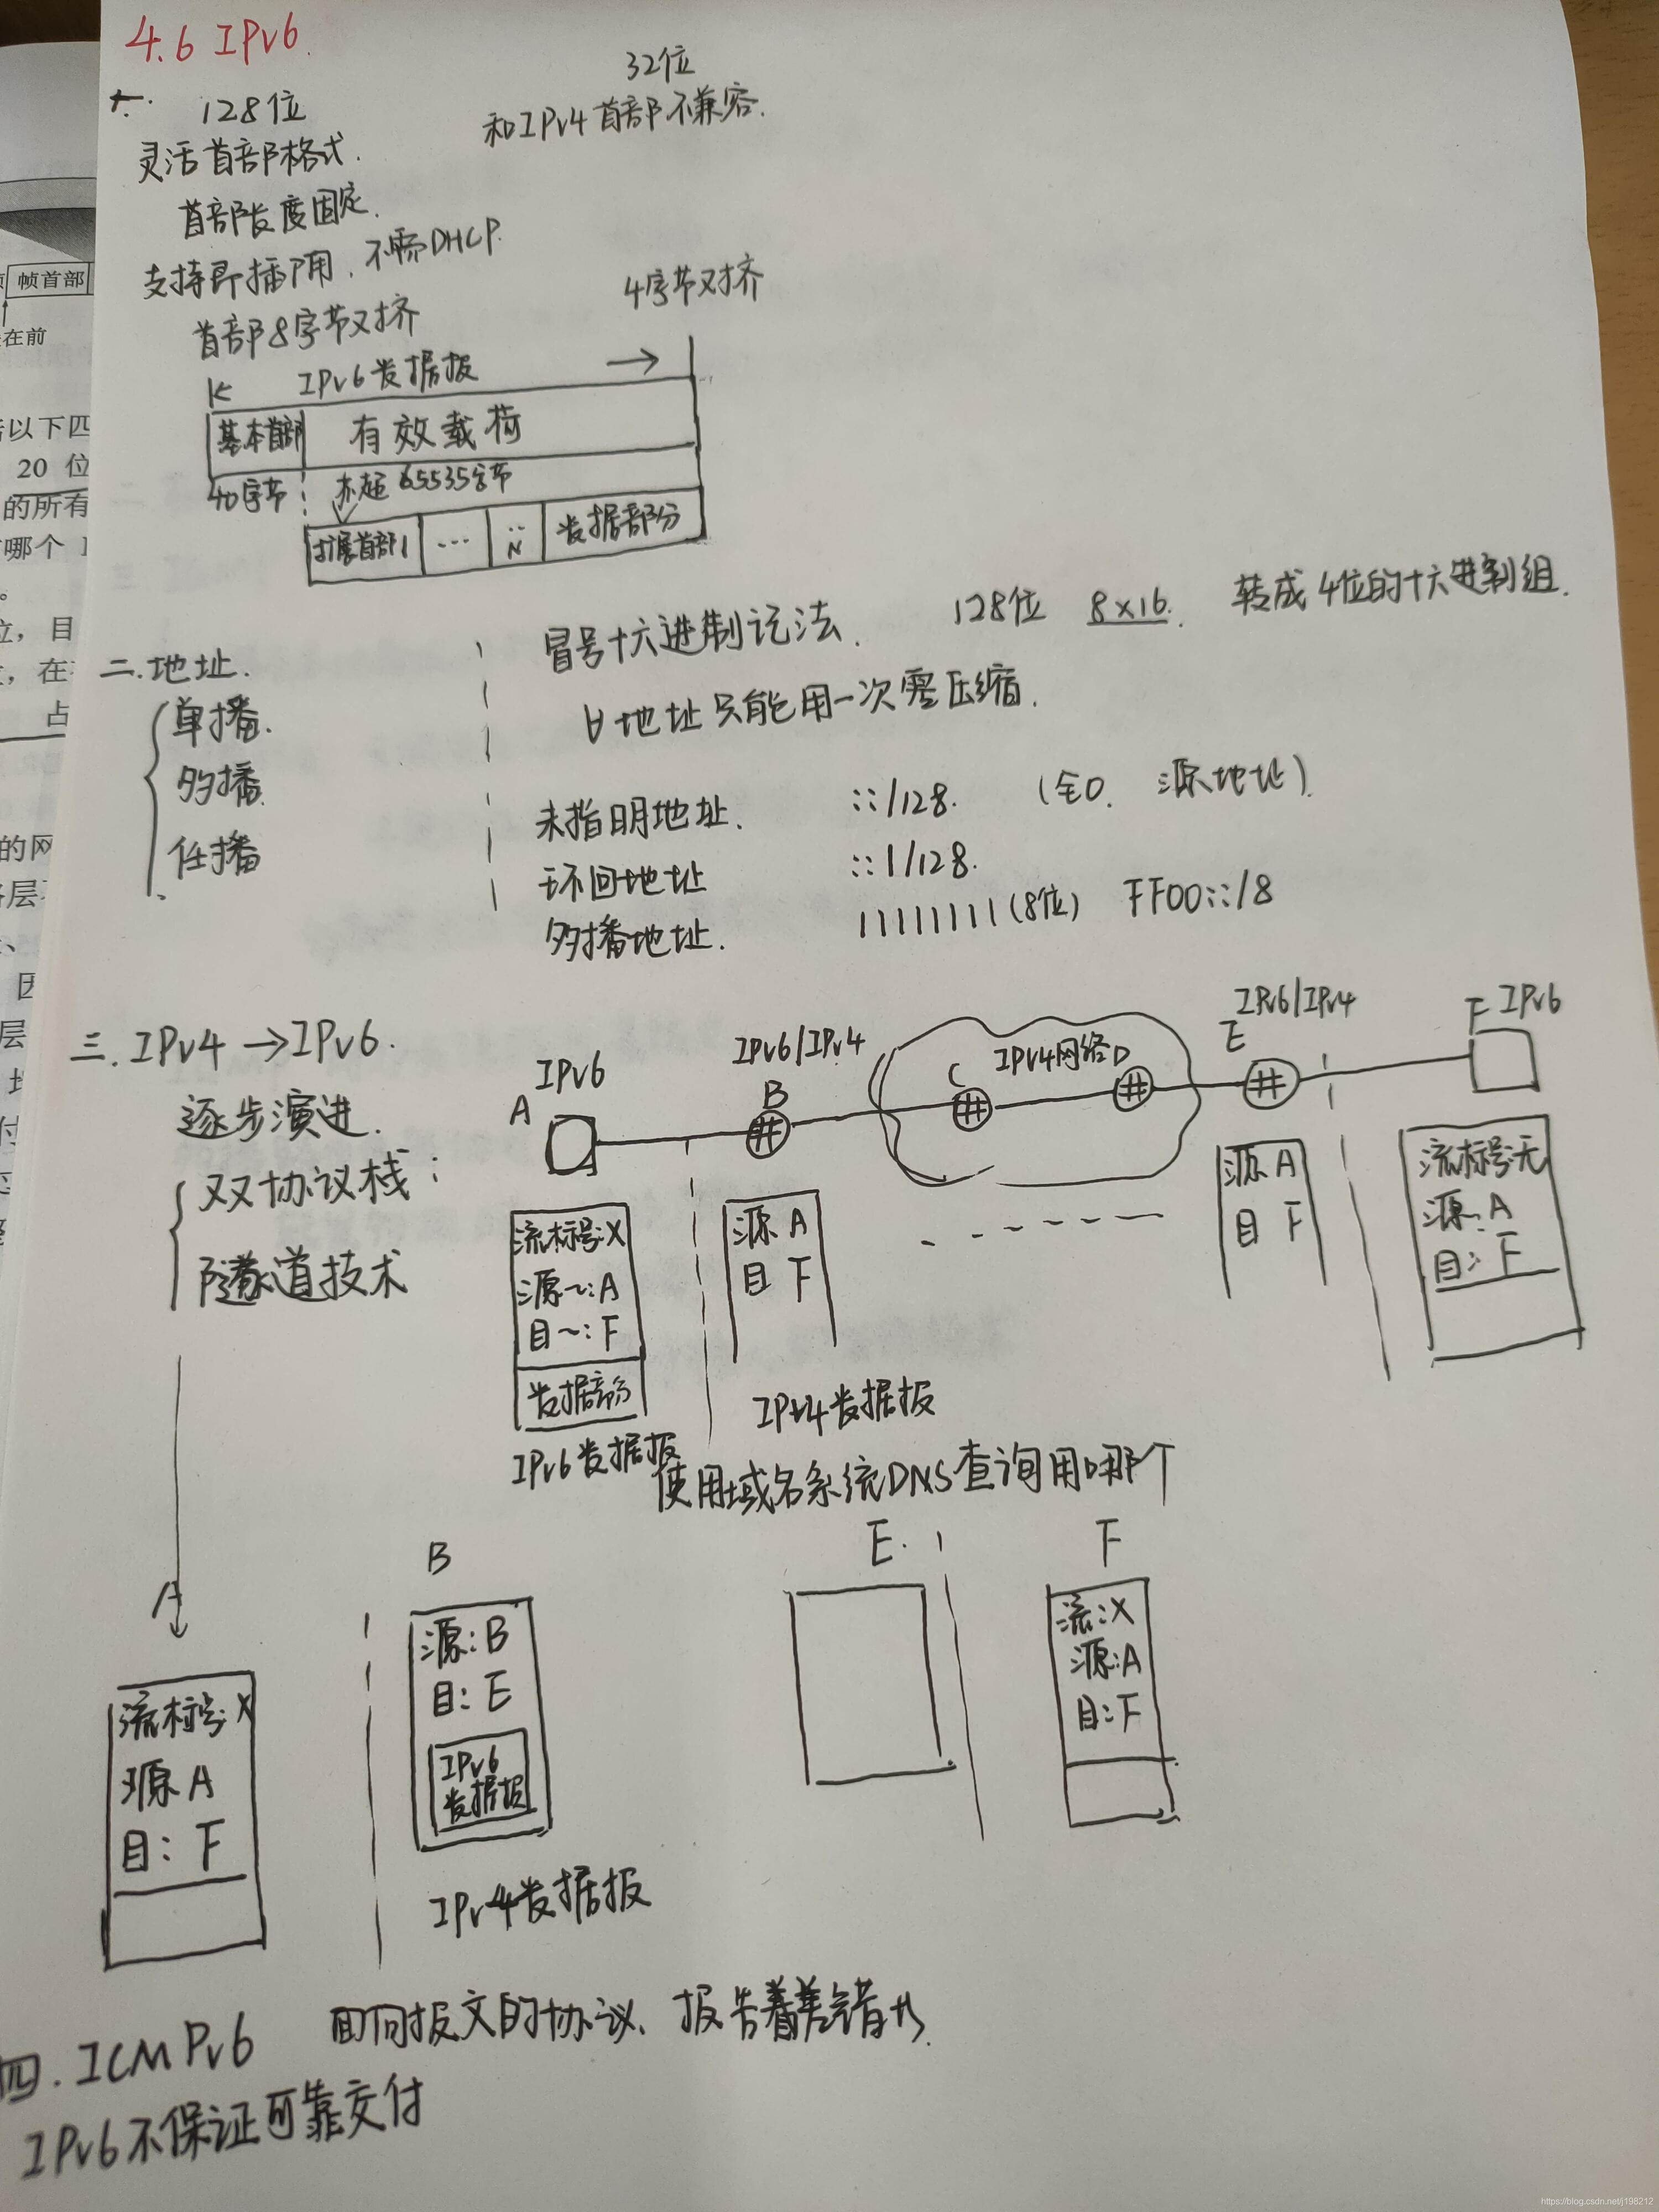 4.6 IPv6.
一.
128位
32位
灵活首部格式.
和IPv4首部不兼容.
首部长度固定.
支持即插即用. 不需DHCP.
首部8字节对齐
4字节对齐
IPv6数据报
基本首部
有效载荷
40字节
65535字节
扩展首部1
...
N
数据部分
二.地址.
单播.
多播
任播
冒号十六进制记法.
128位 8×16. 转成4位的十六进制组.
∀地址只能用一次零压缩.
未指明地址. ::/128. (全0. 源地址).
环回地址 ::1/128.
多播地址. 11111111(8位) FF00::/8
三. IPv4→IPv6.
逐步演进.
双协议栈:
隧道技术
A
IPv6
IPv6/IPv4
B
C
IPv4网络
D
IPv6/IPv4
E
F
IPv6
流标号:X
源~:A
目~:F
数据部分
IPv6数据报
源 A
目 F
IPv4数据报
源 A
目 F
流标号:无
源~:A
目: F
使用域名系统DNS查询用哪个
A
流标号:X
源 A
目: F
B
源:B
目: E
IPv6
数据报
IPv4数据报
E.
F
流:X
源:A
目:F
四. ICMPv6
面向报文的协议. 报告差错
IPv6不保证可靠交付
帧首部
在前
以下四
20 位
的所有
哪个
位,目
在
占
的网
层
因
层
付
https://blog.csdn.net/j198212